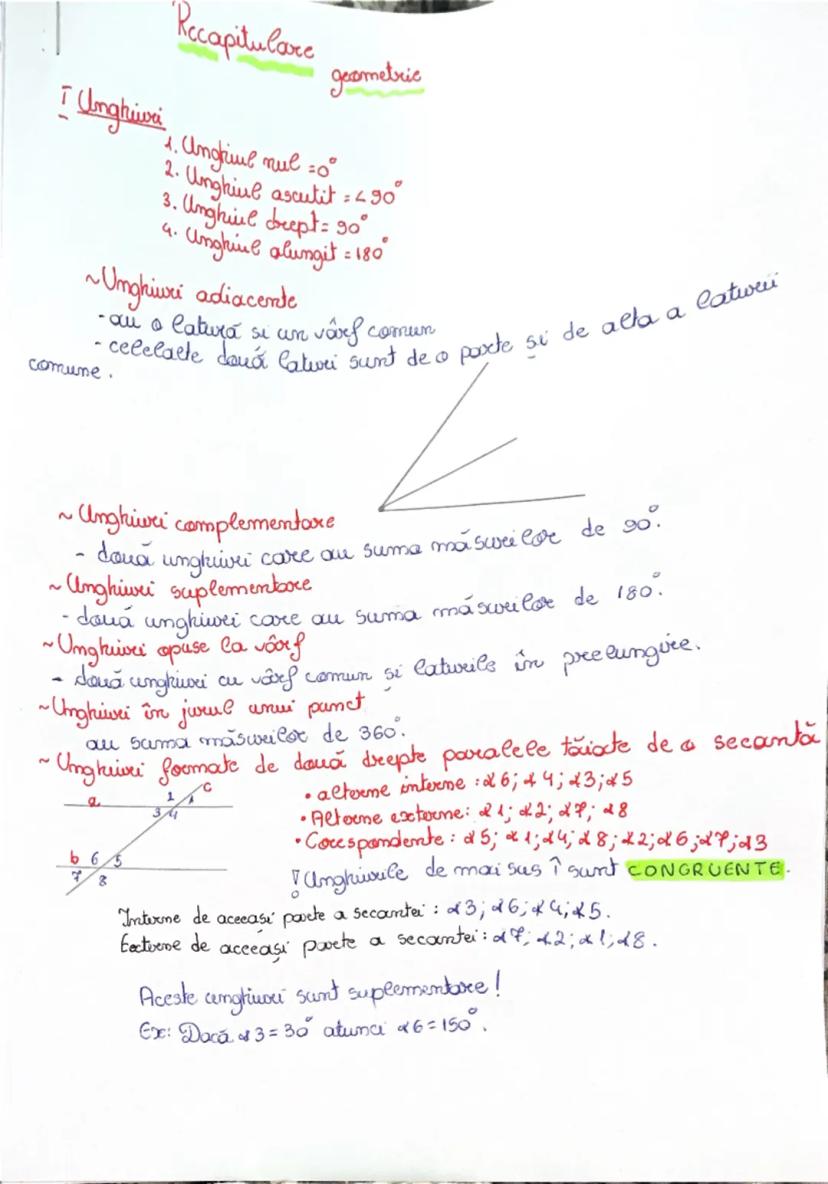 Recapitulare
geometrie
I Unghiuri
1. Unghiul nul = 0°
2. Unghiul ascutit = < 90°
3. Unghiul drept = 90°
4. Unghiul alungit = 180°
~ Unghiuri adiacente
- au o latură si un vârf comun
- celelalte două laturi sunt de o parte și de alta a laturii
comune.
~ Unghiuri complementare
- două unghiuri care au suma măsurilor de 90°.
~ Unghiuri suplementare
- două unghiuri care au suma măsurilor de 180°.
~ Unghiuri opuse la vârf
- două unghiuri cu vârf comun si laturile în prelungire.
~ Unghiuri în jurul unui punct
au suma măsurilor de 360°.
~ Unghiuri formate de două drepte paralele tăiate de o secantă
• alterne interne : ∢6; ∢4; ∢3; ∢5
• Alterne externe: ∢1; ∢2; ∢7; ∢8
• Corespondente : ∢5; ∢1; ∢4; ∢8; ∢2; ∢6; ∢7; ∢3
! Unghiurile de mai sus ↑ sunt CONGRUENTE.
a
c
1
3 4
b 6 5
7 8
Interne de aceeași parte a secantei : ∢3; ∢6; ∢4; ∢5.
Externe de aceeași parte a secantei : ∢7; ∢2; ∢1; ∢8.
Aceste unghiuri sunt suplementare!
Ex: Dacă ∢3 = 30° atunci ∢6 = 150°.